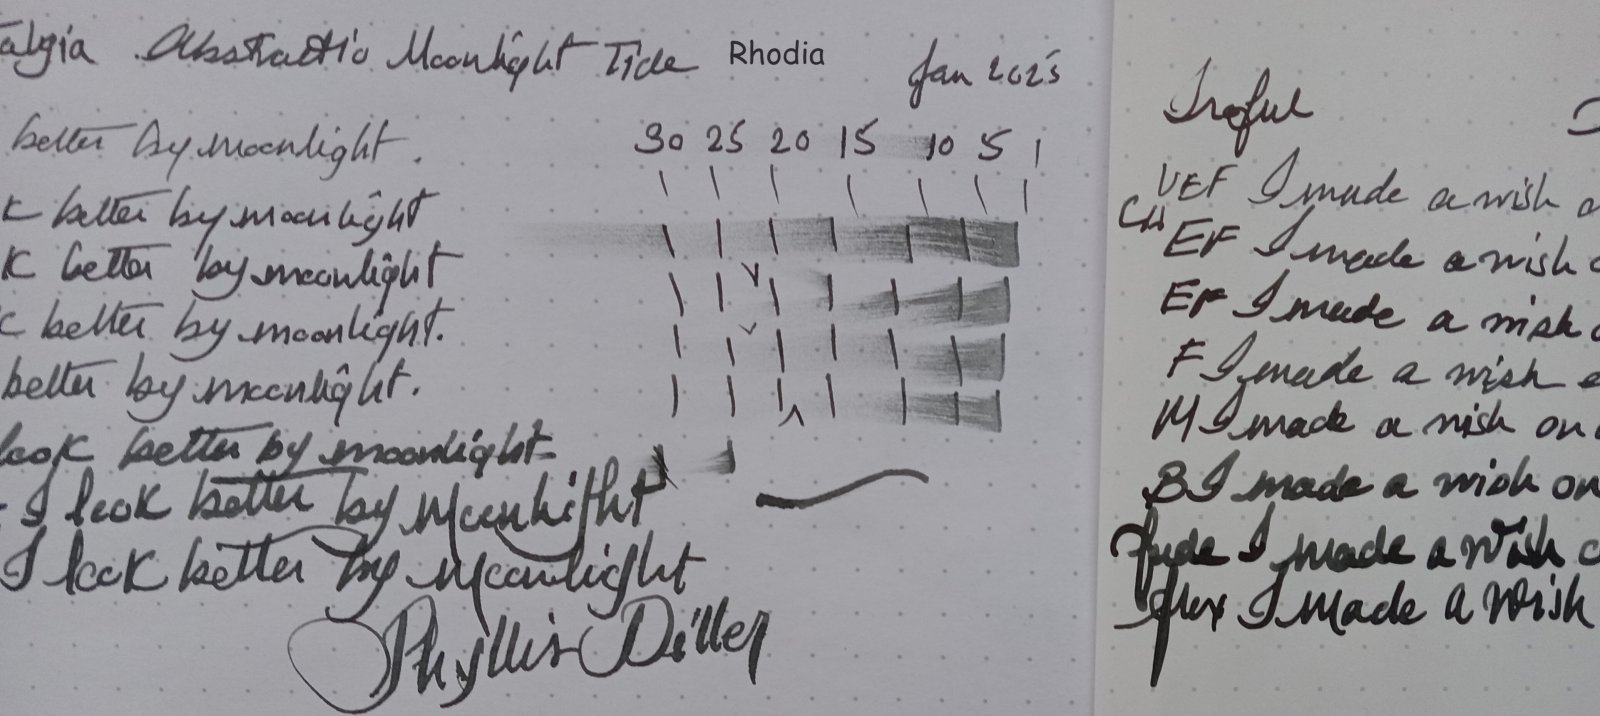 algia Abstractio Moonlight Tide Rhodia Jan 2025
better by moonlight.
30 25 20 15 10 5 1
K better by moonlight
K better by moonlight
K better by moonlight.
better by moonlight.
look better by moonlight
I look better by moonlight
I look better by moonlight
Phyllis Diller
Iroful
VEF I made a wish o
CH EF I made a wish o
EF I made a wish o
F I made a wish
M I made a wish on
B I made a wish on
fude I made a wish o
flex I made a wish